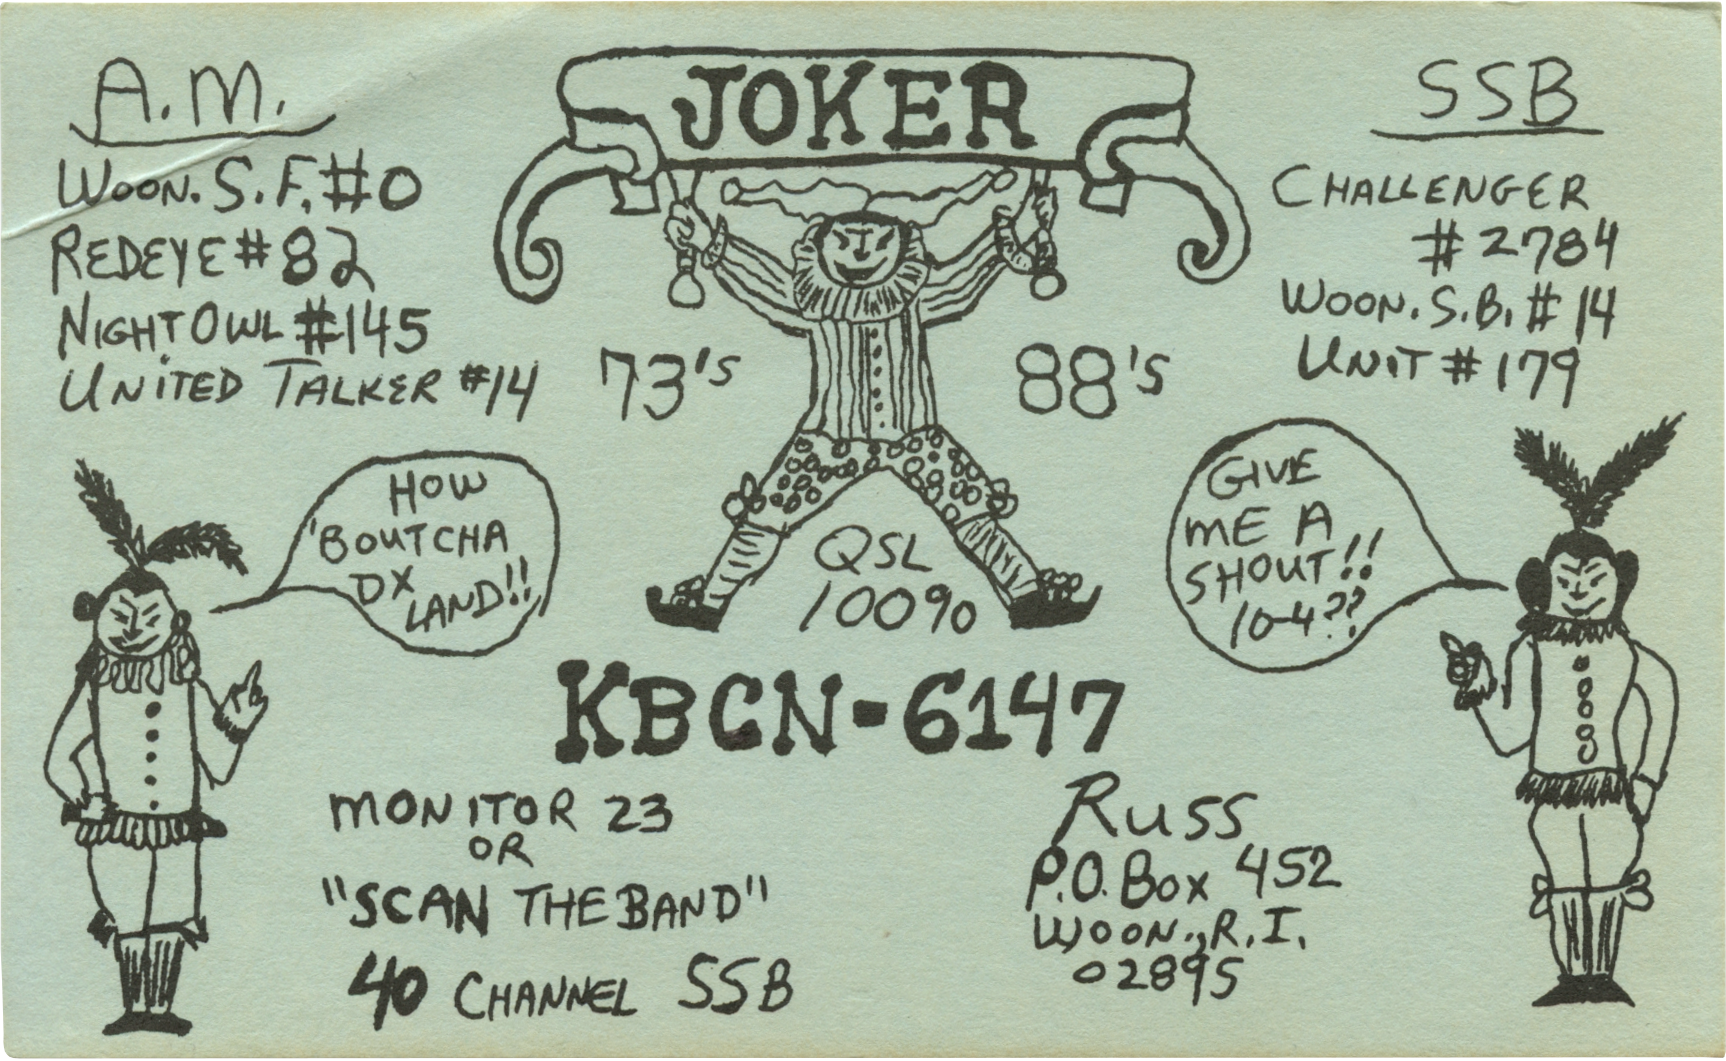 JOKER
A.M.
WOON. S.F. #0
REDEYE #82
NIGHT OWL #145
UNITED TALKER #14
SSB
CHALLENGER
#2784
WOON. S.B. #14
UNIT #179
73's
88's
HOW
'BOUTCHA
DX
LAND!!
GIVE
ME A
SHOUT!!
10-4??
QSL
100%
KBCN-6147
MONITOR 23
OR
"SCAN THE BAND"
40 CHANNEL SSB
RUSS
P.O. BOX 452
WOON., R.I.
02895